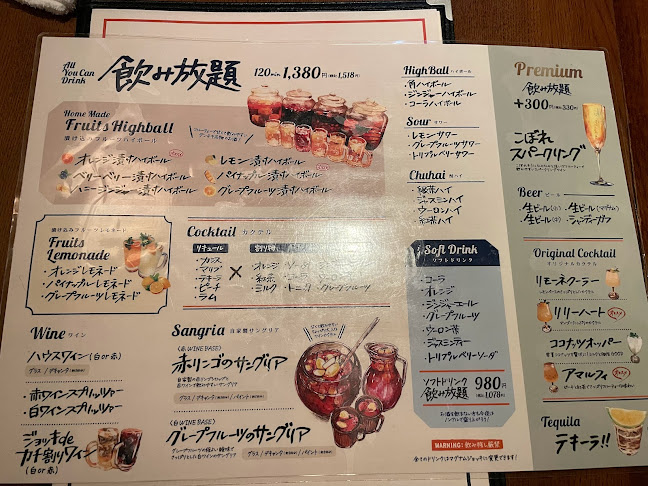 All
You Can
Drink
飲み放題
120min 1,380円(税込1,518円)
Home Made
Fruits Highball
漬け込みフルーツハイボール
オレンジ漬けハイボール
ベリーベリー漬けハイボール
ハニージンジャー漬けハイボール
レモン漬けハイボール
パイナップル漬けハイボール
グレープフルーツ漬けハイボール
漬け込みフルーツレモネード
Fruits
Lemonade
・オレンジレモネード
・パイナップルレモネード
・グレープフルーツレモネード
Cocktail カクテル
リキュール
・カシス
・マリブ
・テキーラ
・ピーチ
・ラム
×
割り物
・オレンジ
・ソーダ
・ミルク
・トニック
・グレープフルーツ
Wine ワイン
・ハウスワイン(白or赤)
グラス / デキャンタ
・赤ワインスプリッツァー
・白ワインスプリッツァー
ジョッキde
カチ割りワイン
(白or赤)
Sangria 自家製サングリア
(赤WINE BASE)
赤リンゴのサングリア
(白WINE BASE)
グレープフルーツのサングリア
グラス / デキャンタ / パイント
HighBall ハイボール
・角ハイボール
・ジンジャーハイボール
・コーラハイボール
Sour サワー
・レモンサワー
・グレープフルーツサワー
・トリプルベリーサワー
Chuhai 酎ハイ
・緑茶ハイ
・ジャスミンハイ
・ウーロンハイ
・紅茶ハイ
Soft Drink
ソフトドリンク
・コーラ
・オレンジ
・ジンジャーエール
・グレープフルーツ
・ウーロン茶
・ジャスミンティー
・トリプルベリーソーダ
ソフトドリンク
飲み放題
980円
(税込1,078円)
WARNING! 飲み残し厳禁
全てのドリンクはマグナムジョッキに変更できます!
Premium
飲み放題
+300円(税込330円)
こぼれ
スパークリング
Beer ビール
・生ビール(小) ・生ビール(マグナム)
・生ビール(中) ・シャンディーガフ
Original Cocktail
オリジナルカクテル
リモーネクーラー
リリーハート
ココナッツオッパー
アマルフィ
Tequila
テキーラ!!